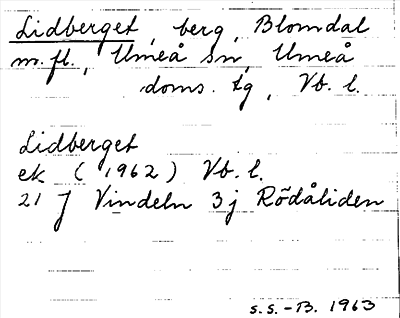 Lidberget, berg, Blomdal
m.fl., Umeå sn, Umeå
doms. tg, Vb. l.
Lidberget
ek (1962) Vb. l.
21 J Vindeln 3j Rödåliden
s.s.-B. 1963